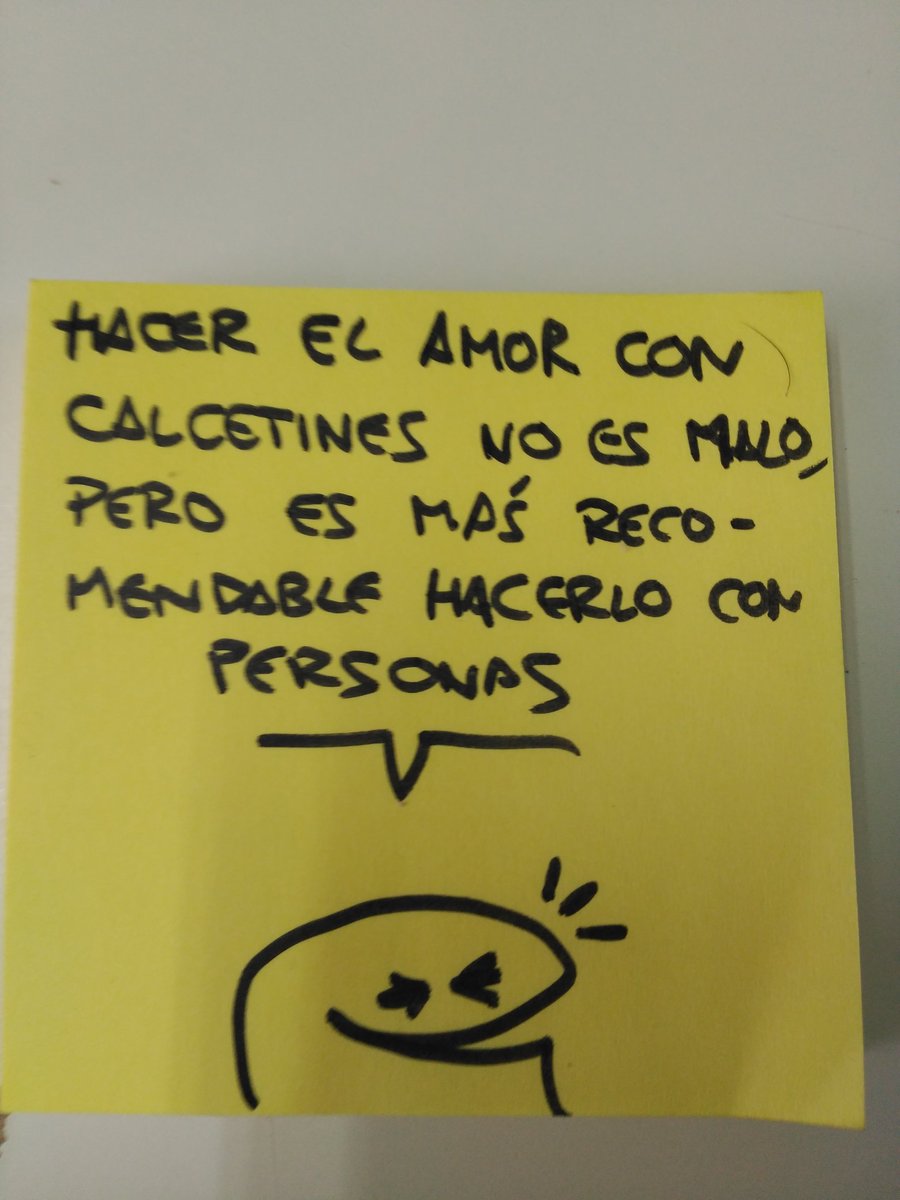 HACER EL AMOR CON
CALCETINES NO ES MALO,
PERO ES MÁS RECO-
MENDABLE HACERLO CON
PERSONAS